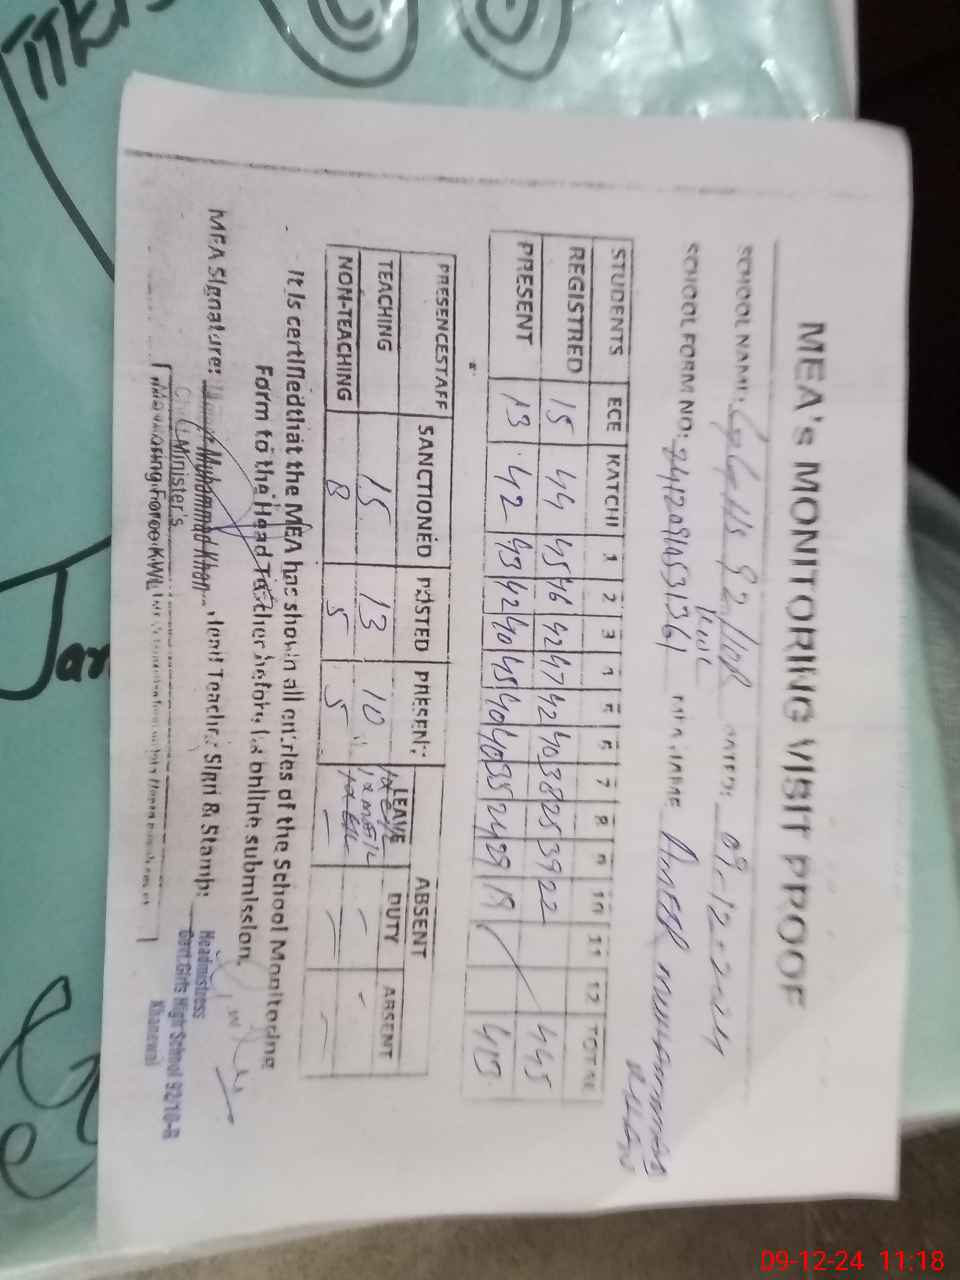 MEA's MONITORING VISIT PROOF
SCHOOL NAME: GGHS 92/10R DATED: 09-12-2024
KWL
SCHOOL FORM NO: MEA NAME AMEER MUHAMMAD
KHAN
STUDENTS ECE KATCHI 1 2 3 4 5 6 7 8 9 10 11 12 TOTAL
REGISTRED 15 44 45 46 42 47 42 40 38 25 39 22 445
PRESENT 13 42 43 42 40 45 40 40 35 24 29 413
PRESENCESTAFF SANCTIONED POSTED PRESENT ABSENT
LEAVE DUTY ABSENT
TEACHING 15 13 10 - -
NON-TEACHING 8 5 5 - - -
It is certifiedthat the MEA has shown all entries of the School Monitoring
Form to the Head Teacher before its online submission.
MEA Signature: Muhammad Khan Teacher Sign & Stamp:
Chief Minister's
Monitoring Force KWL
Headmistress
Govt.Girls High School 92/10-R
Khanewal
Jan
09-12-24 11:18